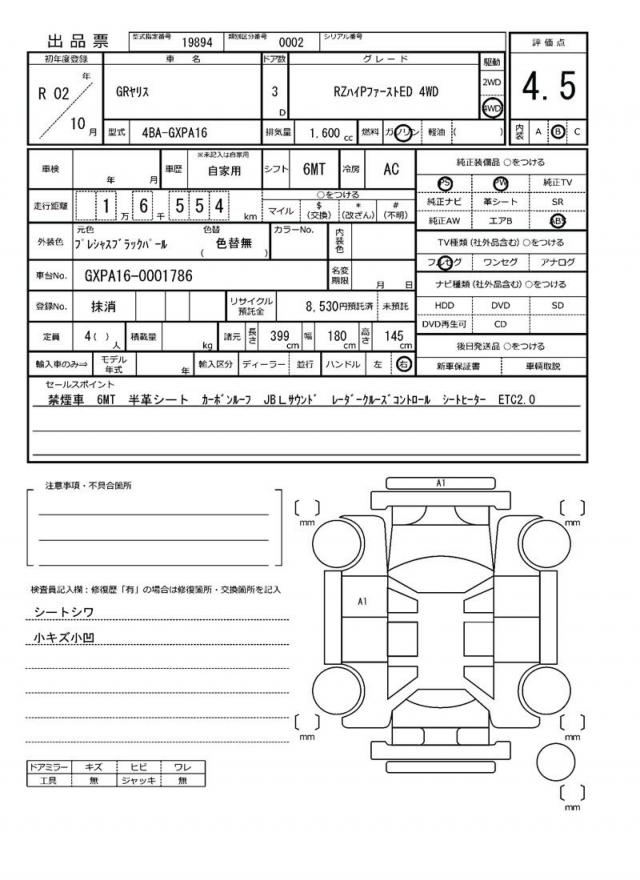 出品票 型式指定番号 19894 類別区分番号 0002 シリアル番号
評価点
4.5
初年度登録 車名 ドア数 グレード 駆動
R 02 年 10 月
GRヤリス 3 D RZハイPファーストED 4WD
2WD
4WD
型式 4BA-GXPA16 排気量 1.600 cc 燃料 ガソリン 軽油 ( ) 内装 A B C
車検 年 月 車歴 ※未記入は自家用 自家用 シフト 6MT 冷房 AC
走行距離 1万6554 km
○をつける
マイル $(交換) *(改ざん) #(不明)
外装色 元色 プレシャスブラックパール 色替 ( 色替無 ) カラーNo. 内装色
車台No. GXPA16-0001786 名変期限 月 日
登録No. 抹消 リサイクル預託金 8,530円預託済 未預託
定員 4( )人 積載量 kg 諸元 長さ 399cm 幅 180cm 高さ 145cm
輸入車のみ⇒ モデル年式 年 輸入区分 ディーラー 並行 ハンドル 左 右
純正装備品 ○をつける
PS PW 純正TV
純正ナビ 革シート SR
純正AW エアB ABS
TV種類(社外品含む)○をつける
フルセグ ワンセグ アナログ
ナビ種類(社外品含む)○をつける
HDD DVD SD
DVD再生可 CD
後日発送品 ○をつける
新車保証書 車輌取説
セールスポイント
禁煙車 6MT 半革シート カーボンルーフ JBLサウンド レーダークルーズコントロール シートヒーター ETC2.0
注意事項・不具合箇所
検査員記入欄:修復歴「有」の場合は修復箇所・交換箇所を記入
シートシワ
小キズ小凹
ドアミラー キズ ヒビ ワレ
工具 無 ジャッキ 無
A1
[ ] mm
[ ] mm
A1
[ ] mm
[ ] mm
[ ] mm